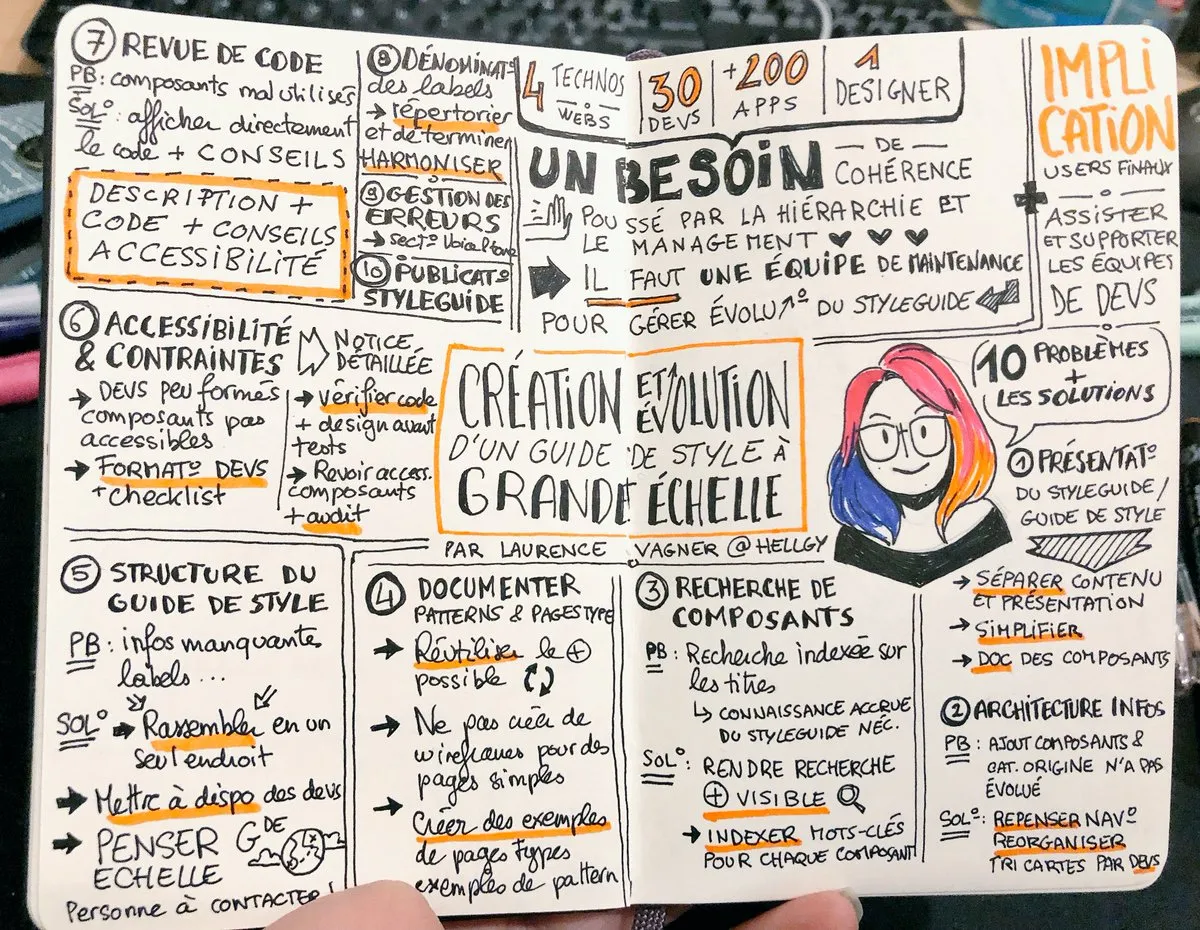 CRÉATION ET ÉVOLUTION
D'UN GUIDE DE STYLE À
GRANDE ÉCHELLE
PAR LAURENCE VAGNER @HELLGY
4 TECHNOS WEBS
30 DEVS
+200 APPS
1 DESIGNER
UN BESOIN DE COHÉRENCE
POUSSÉ PAR LA HIÉRARCHIE ET
LE MANAGEMENT
IL FAUT UNE ÉQUIPE DE MAINTENANCE
POUR GÉRER ÉVOLU° DU STYLEGUIDE
IMPLI
CATION
USERS FINAUX
+
ASSISTER
ET SUPPORTER
LES ÉQUIPES
DE DEVS
10 PROBLÈMES
+
LES SOLUTIONS
1 PRÉSENTAT°
DU STYLEGUIDE/
GUIDE DE STYLE
→ SÉPARER CONTENU
ET PRÉSENTATION
→ SIMPLIFIER
→ DOC DES COMPOSANTS
2 ARCHITECTURE INFOS
PB : AJOUT COMPOSANTS &
CAT. ORIGINE N'A PAS
ÉVOLUÉ
SOL° : REPENSER NAV°
REORGANISER
TRI CARTES PAR DEVS
3 RECHERCHE DE
COMPOSANTS
PB : Recherche indexée sur
les titres
↳ CONNAISSANCE ACCRUE
DU STYLEGUIDE NÉC.
SOL° : RENDRE RECHERCHE
+ VISIBLE
→ INDEXER MOTS-CLÉS
POUR CHAQUE COMPOSANT
4 DOCUMENTER
PATTERNS & PAGES TYPE
→ Réutiliser le +
possible
→ Ne pas créer de
wireframes pour des
pages simples
→ Créer des exemples
de pages types
exemples de pattern
5 STRUCTURE DU
GUIDE DE STYLE
PB : infos manquante
labels ...
SOL° → Rassembler en un
seul endroit
→ Mettre à dispo des devs
→ PENSER GDE
ECHELLE
Personne à CONTACTER !
6 ACCESSIBILITÉ
& CONTRAINTES
→ DEVS peu formés
composants pas
accessibles
→ FORMAT° DEVS
+ checklist
NOTICE
DÉTAILLÉE
→ vérifier code
+ design avant
tests
→ Revoir access.
composants
+ audit
7 REVUE DE CODE
PB : composants mal utilisés
SOL° : afficher directement
le code + CONSEILS
DESCRIPTION +
CODE + CONSEILS
ACCESSIBILITÉ
8 DÉNOMINAT°
des labels
→ répertorier
et déterminer
HARMONISER
9 GESTION DES
ERREURS
→ sect° Voice/tone
10 PUBLICAT°
STYLEGUIDE